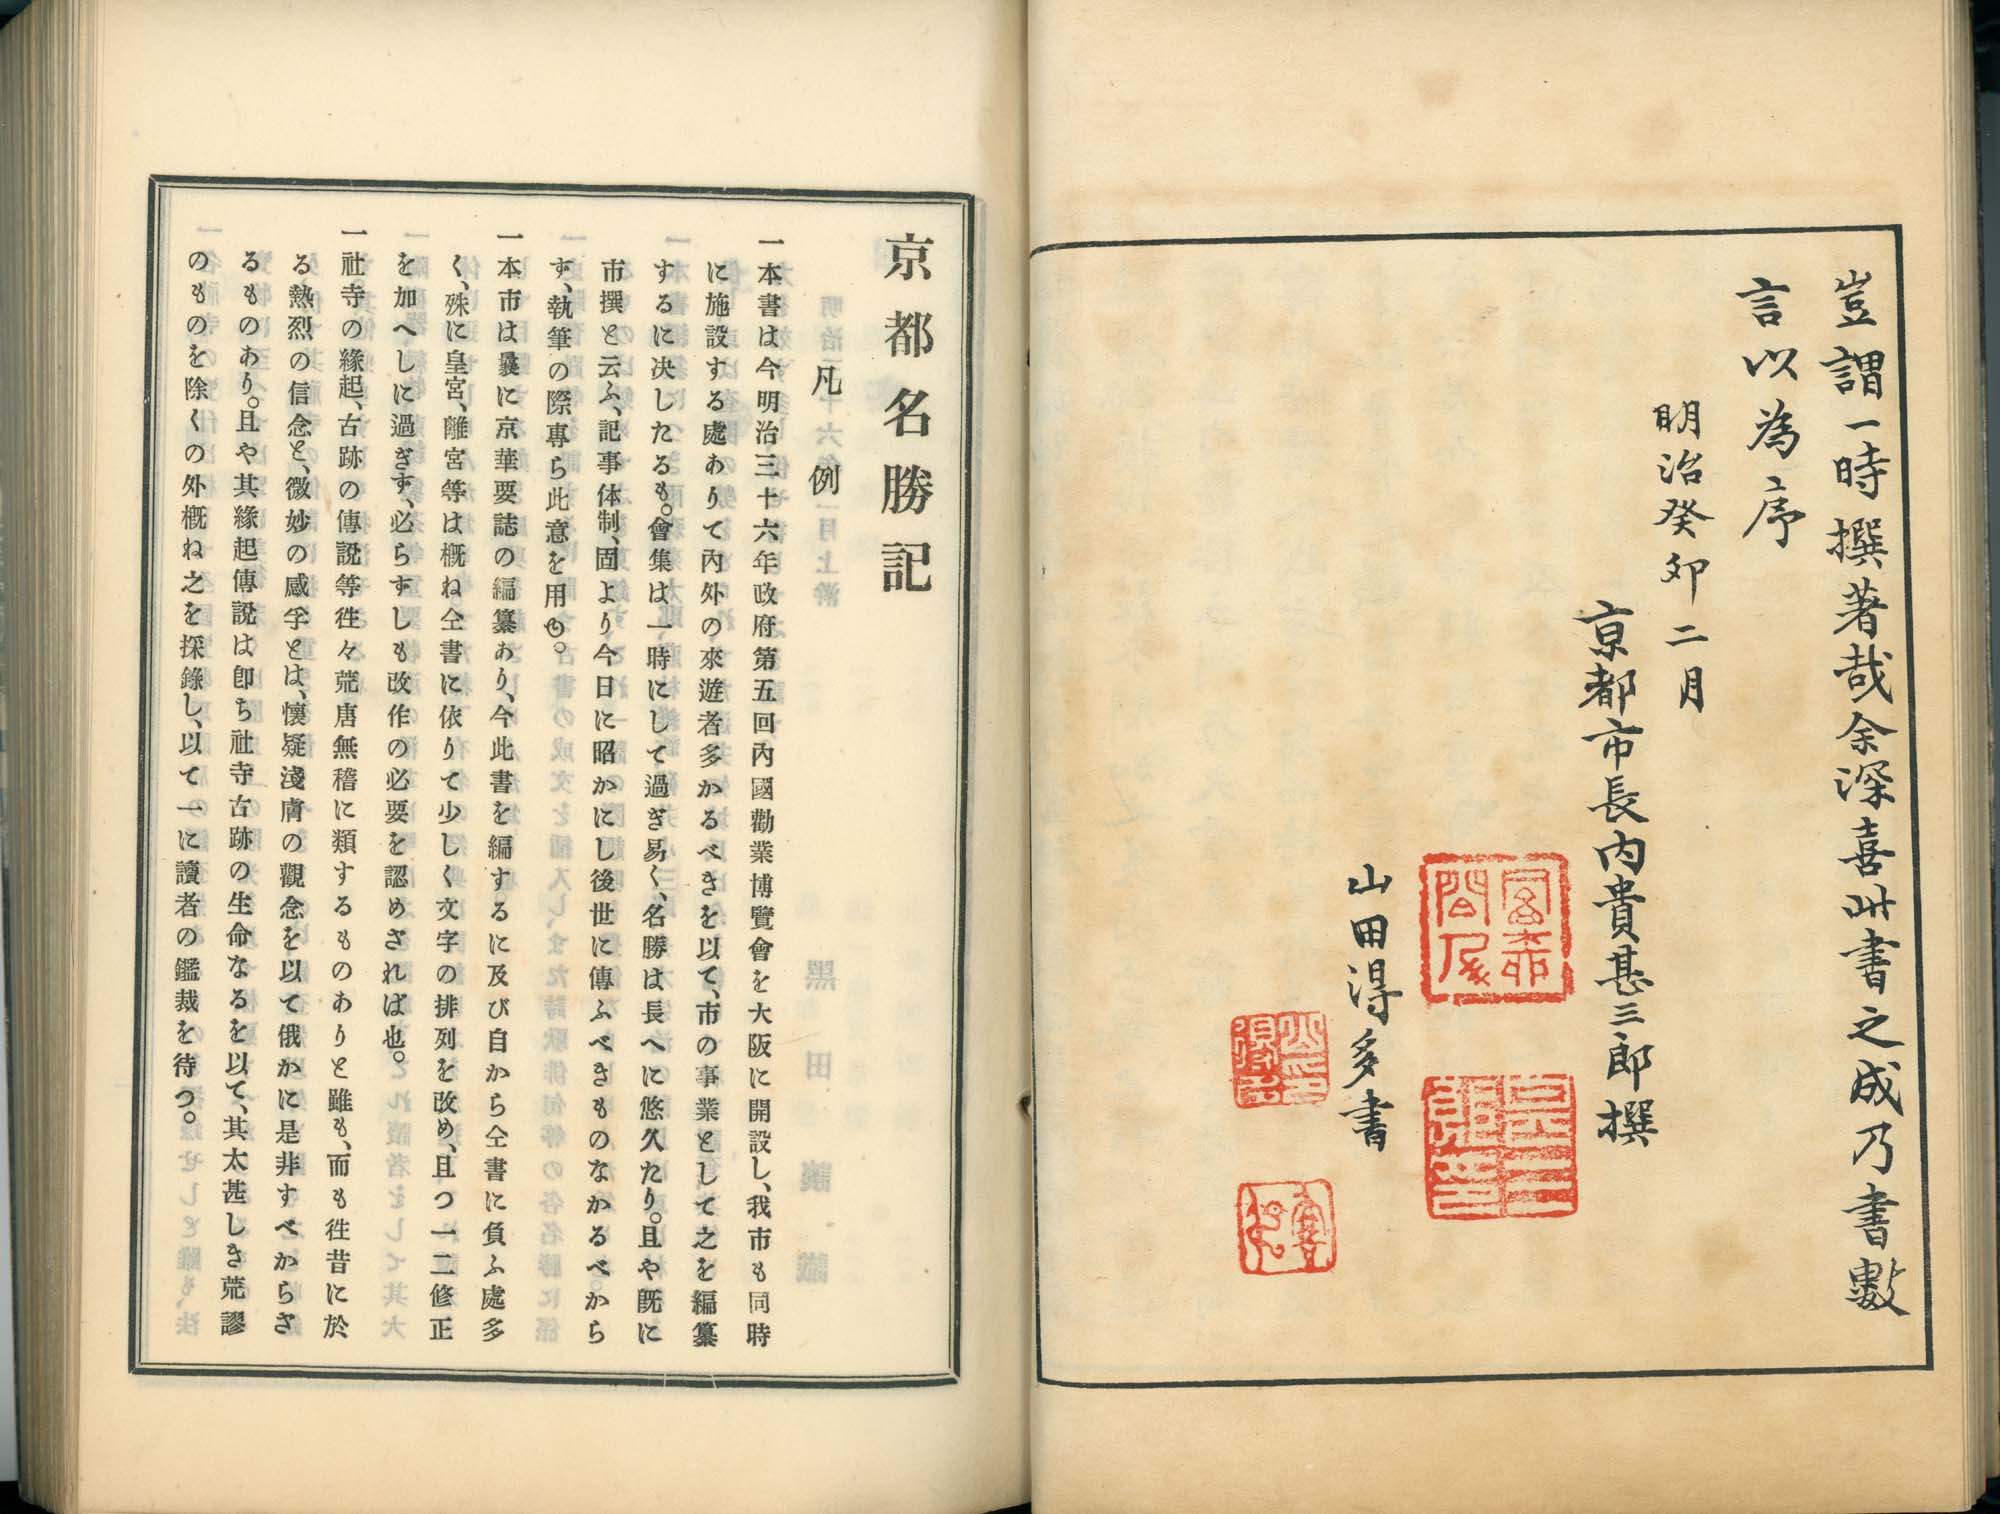 豈謂一時撰著哉余深喜此書之成乃書數
言以為序
明治癸卯二月
京都市長内貴甚三郎撰
山田得多書
京都名勝記
凡例
一本書は今明治三十六年政府第五回內國勸業博覽會を大阪に開設し、我市も同時
に施設する處ありて內外の來遊者多かるべきを以て、市の事業として之を編纂
するに决したるも。會集は一時にして過ぎ易く、名勝は長へに悠久たり。且や既に
市撰と云ふ、記事体制、固より今日に昭かにし後世に傳ふべきものなかるべから
ず、執筆の際專ら此意を用ゆ。
一本市は曩に京華要誌の編纂あり、今此書を編するに及び自から仝書に負ふ處多
く、殊に皇宮、離宮等は概ね仝書に依りて少しく文字の排列を改め、且つ一二修正
を加へしに過ぎす、必らすしも改作の必要を認めされば也。
一社寺の緣起、古跡の傳說等徃々荒唐無稽に類するものありと雖も、而も徃昔に於
る熱烈の信念と、微妙の感孚とは、懷疑淺膚の觀念を以て俄かに是非すべからさ
るものあり。且や其緣起傳說は卽ち社寺古跡の生命なるを以て、其太甚しき荒謬
のものを除くの外概ね之を採錄し、以て一に讀者の鑑裁を待つ。